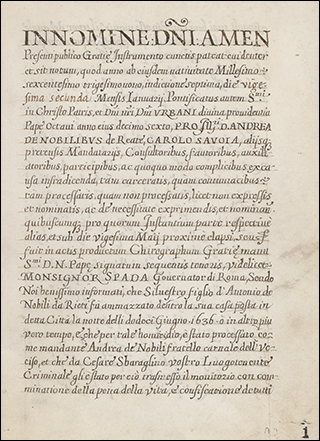 IN NOMINE DÑI AMEN
Presenti publico Gratiæ Instrumento cunctis pateat euidenter
et sit notum, quod anno ab eiusdem natiuitate Millesimo
sexcentesimo trigesimo nono, indictione septima, die vige
sima secunda Mensis Ianuarij, Pontificatus autem Smi
in Christo Patris, et Dni nri Dni VRBANI diuina prouidentia
Papæ Octaui anno eius decimo sexto, PRO D. ANDREA
DE NOBILIBVS de Reate, CAROLO SAVOIA, alijsq
pretensis Mandatarijs, Consultoribus, fautoribus, auxili
atoribus, participibus, ac quoquo modo complicibus, ex ca
usa infra dicenda, tam carceratis, quam contumacibus,
tam processatis, quam non processatis, licet non expressis,
et nominatis, ac de necessitate exprimendis, et nominan
quibuscunq, pro quorum Iustantium parte respectiue
alias, et sub die vigesima Maij proxime elapsi,
fuit in actis productum Chirographum Gratiæ manu
Smi D. N. Papæ signatum sequentis tenoris, Videlicet
MONSIGNOR SPADA Gouernator di Roma, Sendo
Noi benissimo informati, che Siluestro figlio d'Antonio de
Nobili da Rieti fù ammazzato dentro la sua casa posta in
detta Città la notte delli dodeci Giugno 1636 ò in altro più
vero tempo, e che per tale homicidio, è stato processato co
me mandante Andrea de' Nobili fratello carnale dell'Vc
ciso, et che da Cesare Sbaraglino vostro Luogotenente
Criminale gli è stato per ciò trasmesso il monitorio con com
minatione della pena della vita, e confiscatione de tutti
1